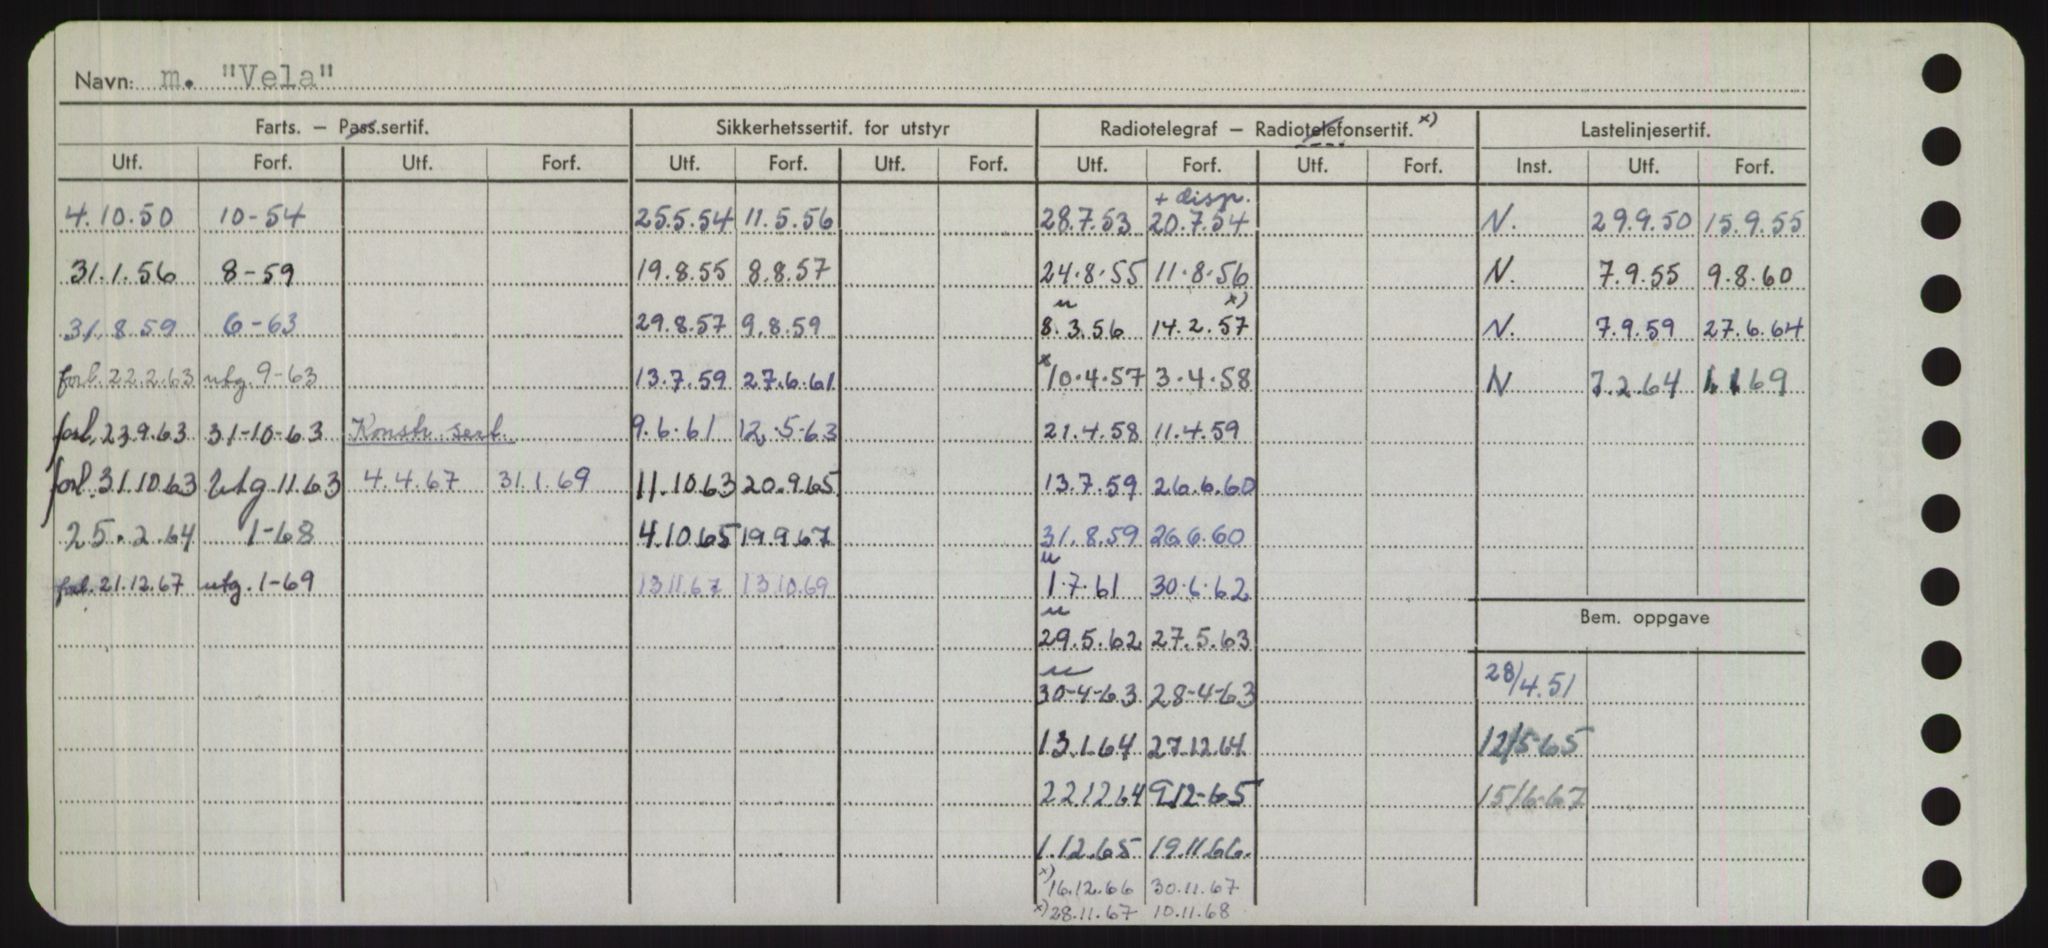 Navn: m. "Vela"
Farts. – Pass.sertif. Sikkerhetssertif. for utstyr Radiotelegraf – Radiotelefonsertif. x) Lastelinjesertif.
Utf. Forf. Utf. Forf. Utf. Forf. Utf. Forf. Utf. Forf. Utf. Forf. Inst. Utf. Forf.
+ disp.
4.10.50 10-54 25.5.54 11.5.56 28.7.53 20.7.54 N. 29.9.50 15.9.55
31.1.56 8-59 19.8.55 8.8.57 24.8.55 11.8.56 N. 7.9.55 9.8.60
u x)
31.8.59 6-63 29.8.57 9.8.59 8.3.56 14.2.57 N. 7.9.59 27.6.64
forl. 22.2.63 utg. 9-63 13.7.59 27.6.61 x 10.4.57 3.4.58 N 7.2.64 1.1.69
forl. 23.9.63 31-10-63 Konstr. sert. 9.6.61 12.5-63 21.4.58 11.4.59
forl. 31.10.63 Utg. 11.63 4.4.67 31.1.69 11.10.63 20.9.65 13.7.59 26.6.60
25.2.64 1-68 4.10.65 19.9.67 31.8.59 26.6.60
u
forl. 21.12.67 utg. 1-69 13.11.67 13.10.69 1.7.61 30.6.62
u
Bem. oppgave
29.5.62 27.5.63
u
30-4-63 28-4-63 28/4.51
13.1.64 27.12.64 12/5-65
22.12.64 9.12-65 15/6-67
1.12.65 19.11.66.
x) 16.12.66 30.11.67
x) 28.11.67 10.11.68